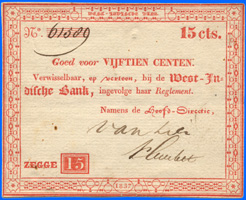 No. 61389 15 cts.
Goed voor VIJFTIEN CENTEN.
Verwisselbaar, op vertoon, bij de West-In-
dische Bank, ingevolge haar Reglement.
Namens de Hoofd-Directie,
van Lier
ZEGGE 15
1837